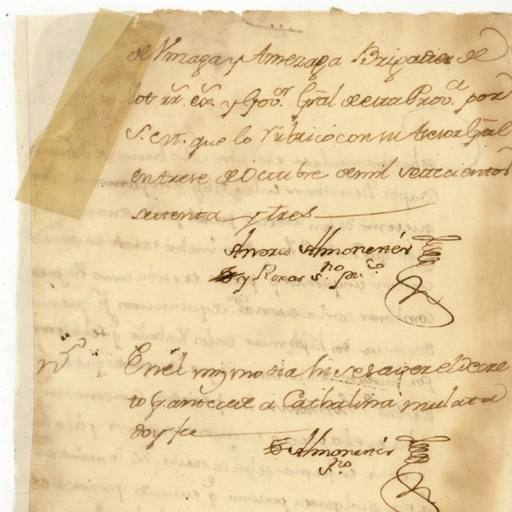 de Unzaga y Amezaga Brigadier de
los rr. ex. y Gov.or Gral de esta Prov.a por
S. M. que lo rubricó con su Acesor Gral
en trese de Octubre de mil setecientos
setenta y tres
Andres Almonester
y Roxas s.no pu.co
En el mismo dia hise saver el decre
to q antecede a Cathalina mulata
doy fe
Almonester
s.no